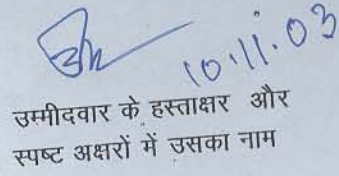 10.11.03
उम्मीदवार के हस्ताक्षर और
स्पष्ट अक्षरों में उसका नाम